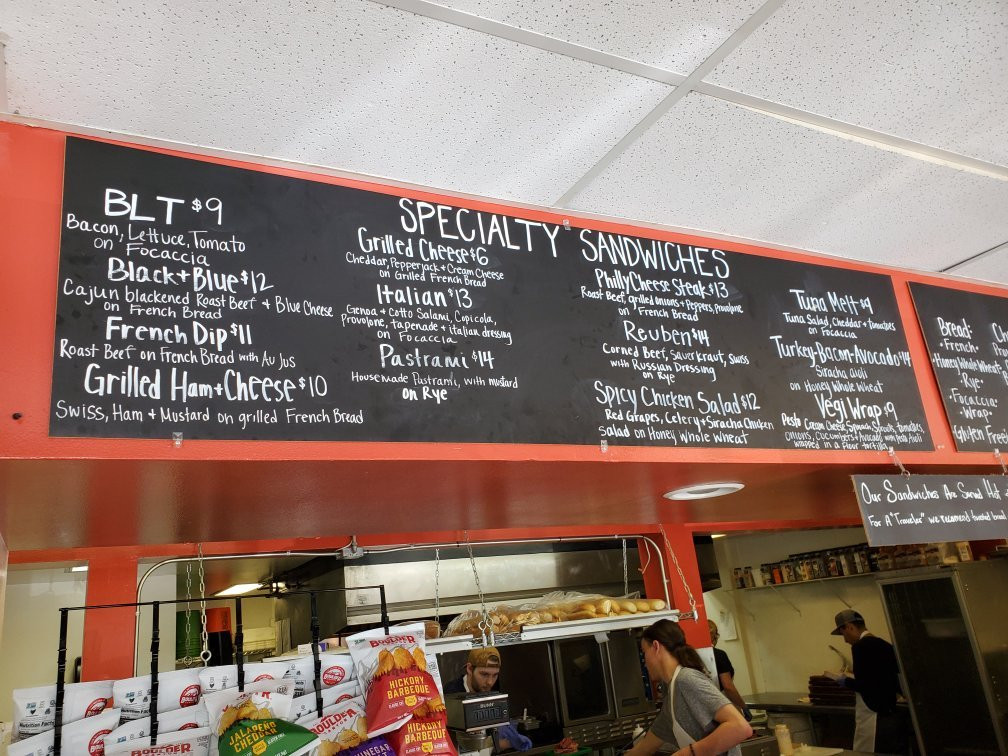 SPECIALTY SANDWICHES
BLT $9
Bacon, Lettuce, Tomato
on Focaccia
Black + Blue $12
Cajun blackened Roast Beef + Blue Cheese
on French Bread
French Dip $11
Roast Beef on French Bread with Au Jus
Grilled Ham + Cheese $10
Swiss, Ham + Mustard on grilled French Bread
Grilled Cheese $6
Cheddar, Pepperjack + Cream Cheese
on Grilled French Bread
Italian $13
Genoa + Cotto Salami, Copicola,
Provolone, tapenade + italian dressing
on Focaccia
Pastrami $14
House made Pastrami, with mustard
on Rye
Philly Cheese Steak $13
Roast Beef, grilled onions + Peppers, provolone
on French Bread
Reuben $14
Corned Beef, Sauerkraut, Swiss
with Russian Dressing
on Rye
Spicy Chicken Salad $12
Red Grapes, Celery + Siracha Chicken
Salad on Honey Whole Wheat
Tuna Melt $9
Tuna Salad, Cheddar + Tomatoes
on Focaccia
Turkey-Bacon-Avocado $14
Siracha Aioli
on Honey Whole Wheat
Vegi Wrap $9
Pesto Cream Cheese, Spinach, Sprouts, tomatoes,
onions, Cucumbers + Avocado with Pesto Aioli
wrapped in a flour tortilla
Bread:
-French-
-Honey Whole Wheat-
-Rye-
-Focaccia-
-Wrap-
-Gluten Free
Our Sandwiches Are Served Hot
For A "Traveler" we recommend toasted bread
BOULDER
HICKORY
BARBEQUE
JALAPEÑO
CHEDDAR
BOULDER
VINEGAR
HICKORY
BARBEQUE
Nutrition Facts